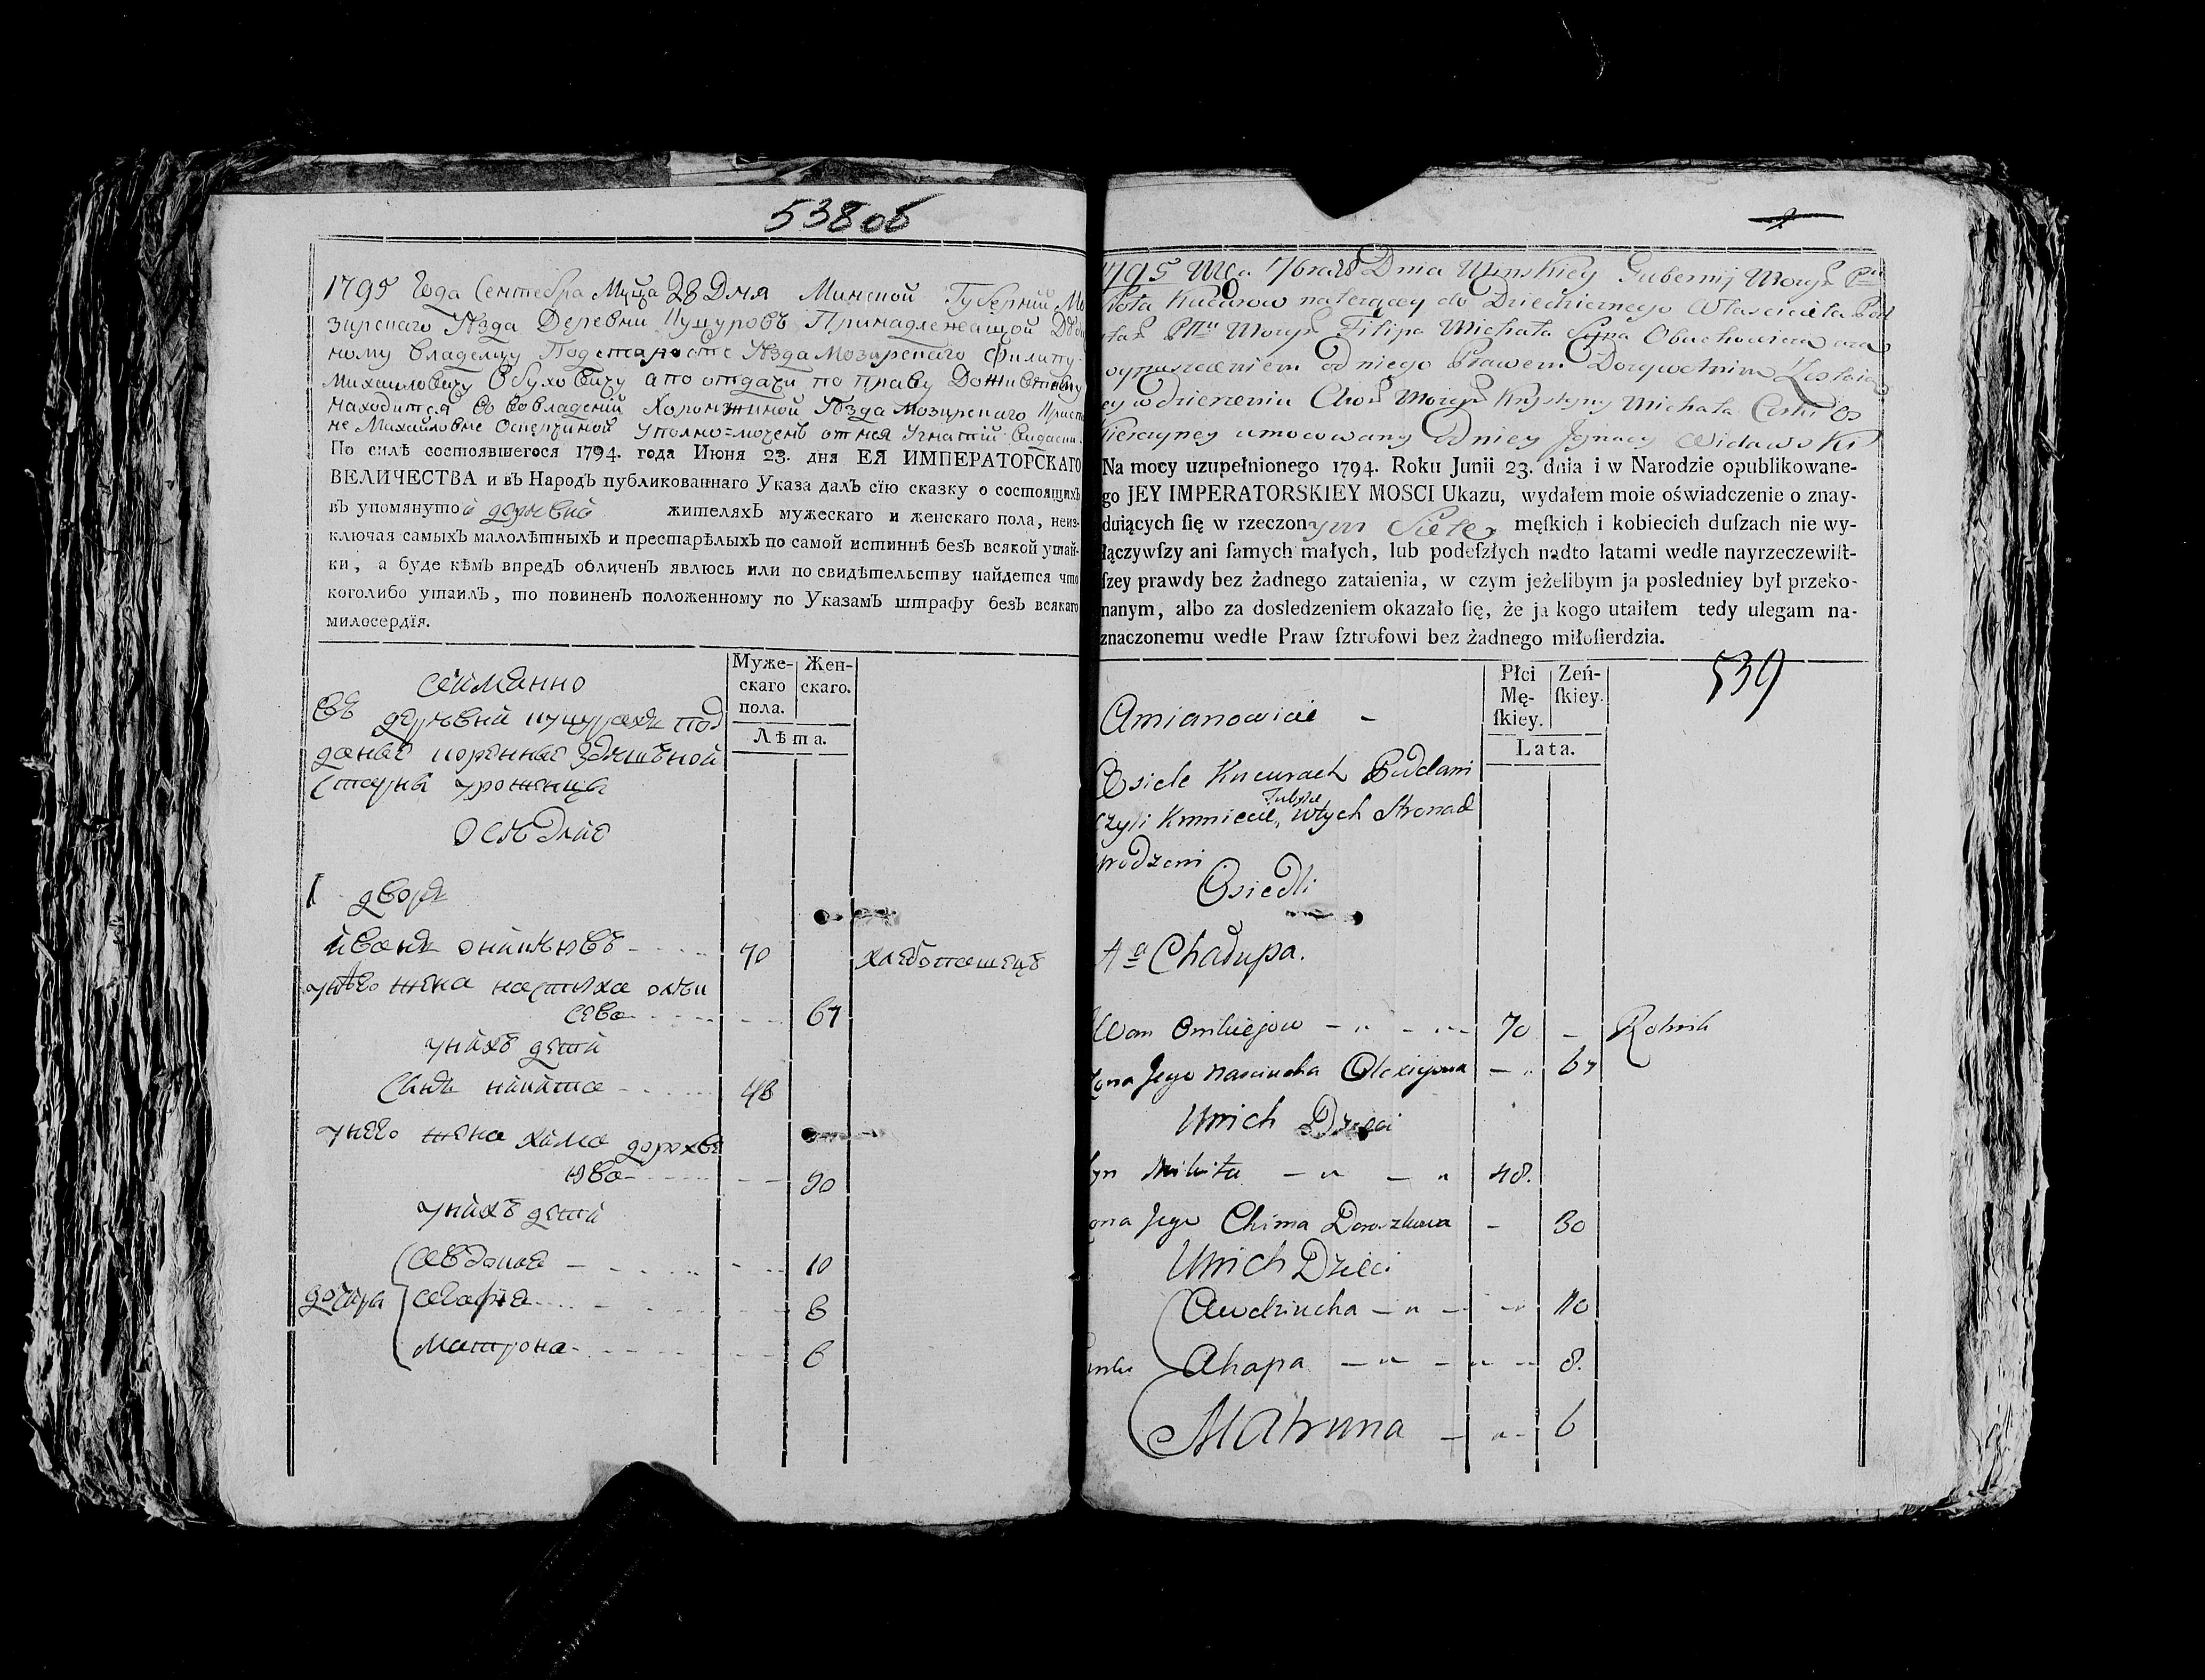 538об
1795 Года Сентебра Мца 28 Дня Минской Губерній Мо
зирскаго Уѣзда Деревни Куцуровъ Принадлежащой Дѣди
ному Владельцу Подстаросте Уѣзда Мозирскаго Филипу
Михайловичу Обуховичу а по отдачи по праву Доживотному
находится во владеній Хоронжиной Уѣзда Мозирскаго Крист
не Михайловне уполно=моченъ от нея Игнатій
По силѣ состоявшегося 1794. года Июня 23. дня ЕЯ ИМПЕРАТОРСКАГО
ВЕЛИЧЕСТВА и въ Народъ публикованнаго Указа далъ сїю сказку о состоящихъ
въ упомянутой деревни жителяхъ мужескаго и женскаго пола, неиз-
ключая самыхъ малолѣтныхъ и престарѣлыхъ по самой истиннѣ безъ всякой утай-
ки, а буде кѣмъ впредъ обличенъ явлюсь или по свидѣтельству найдется что
коголибо утаилъ, то повиненъ положенному по Указамъ штрафу безъ всякаго
милосердїя.
Муже-
скаго
пола.
Жен-
скаго.
Лѣта.
имянно
въ деревни куцурахъ под
даные коренные здешней
стороны уроженцы
оселые
1 дворъ
иванъ 70 хлебопашецъ
у него жена настуха олек
сева 67
у нихъ дети
сынъ никита 48
у него жена хима
ева 30
у нихъ дети
10
дочери агафия 8
матрона 6
1795 Mca 7bra 28 Dnia Minskiey Gubernij Mozyr Ptu
Sioła Kucurow należącey do Dziedzicznego Własciciela Pod
Pttu Mozyr Filipa Michała Syna Obuchowicza
wypuszczeniem od niego Prawem Dożywotnim
ey w dzierżeniu Chor Mozyr Krystyny Michała Corki Os
kierczyney umocowany od niey Jgnacy Widawski
Na mocy uzupełnionego 1794. Roku Junii 23. dnia i w Narodzie opublikowane-
go JEY IMPERATORSKIEY MOSCI Ukazu, wydałem moie oświadczenie o znay-
duiących ſię w rzeczonym Siele męſkich i kobiecich duſzach nie wy-
łączywſzy ani ſamych małych, lub podeſzłych nadto latami wedle nayrzeczewiſt-
ſzey prawdy bez żadnego zataienia, w czym jeżelibym ja posledniey był przeko-
nanym, albo za dosledzeniem okazało ſię, że ja kogo utaiłem tedy ulegam na-
znaczonemu wedle Praw ſztrofowi bez żadnego miłoſierdzia.
539
Płci
Mę-
ſkiey.
Zeń-
ſkiey.
Lata.
Amianowicie
Wsiele Kucurach Poddani
czyli Kmiecie, Tutysze wtych Stronach
wrodzeni
Osiedli
1a Chałupa.
Iwan Onikiejow 70 Rolnik
Żona Jego Nasciucha Olexiejowa 67
U nich Dzieci
Syn Mikita 48.
Żona Jego Chima 30
U nich Dzieci
Awdziucha 10
Ahapa 8.
Matruna 6